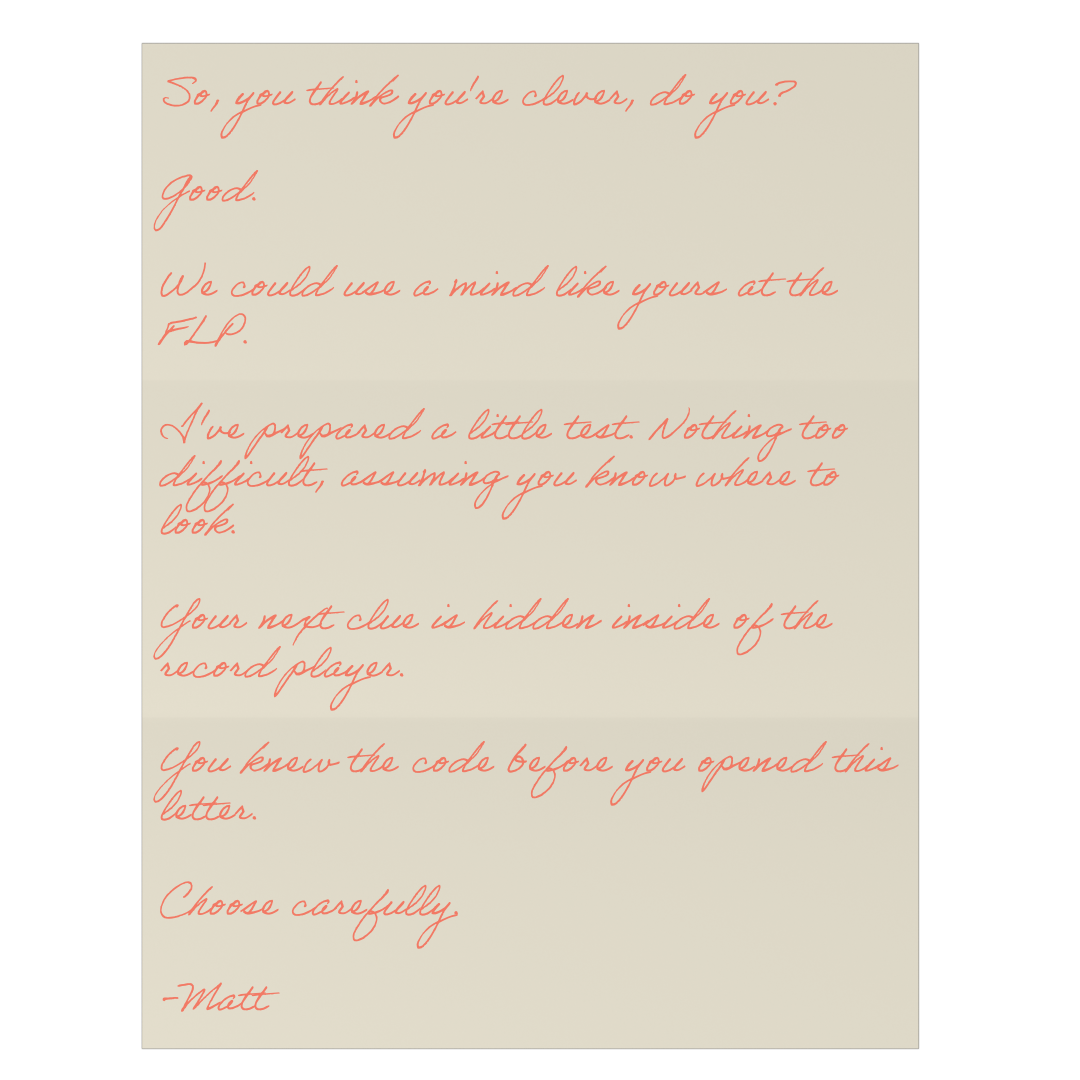 So, you think you're clever, do you?
Good.
We could use a mind like yours at the
FLP.
I've prepared a little test. Nothing too
difficult, assuming you know where to
look.
Your next clue is hidden inside of the
record player.
You knew the code before you opened this
letter.
Choose carefully,
-Matt